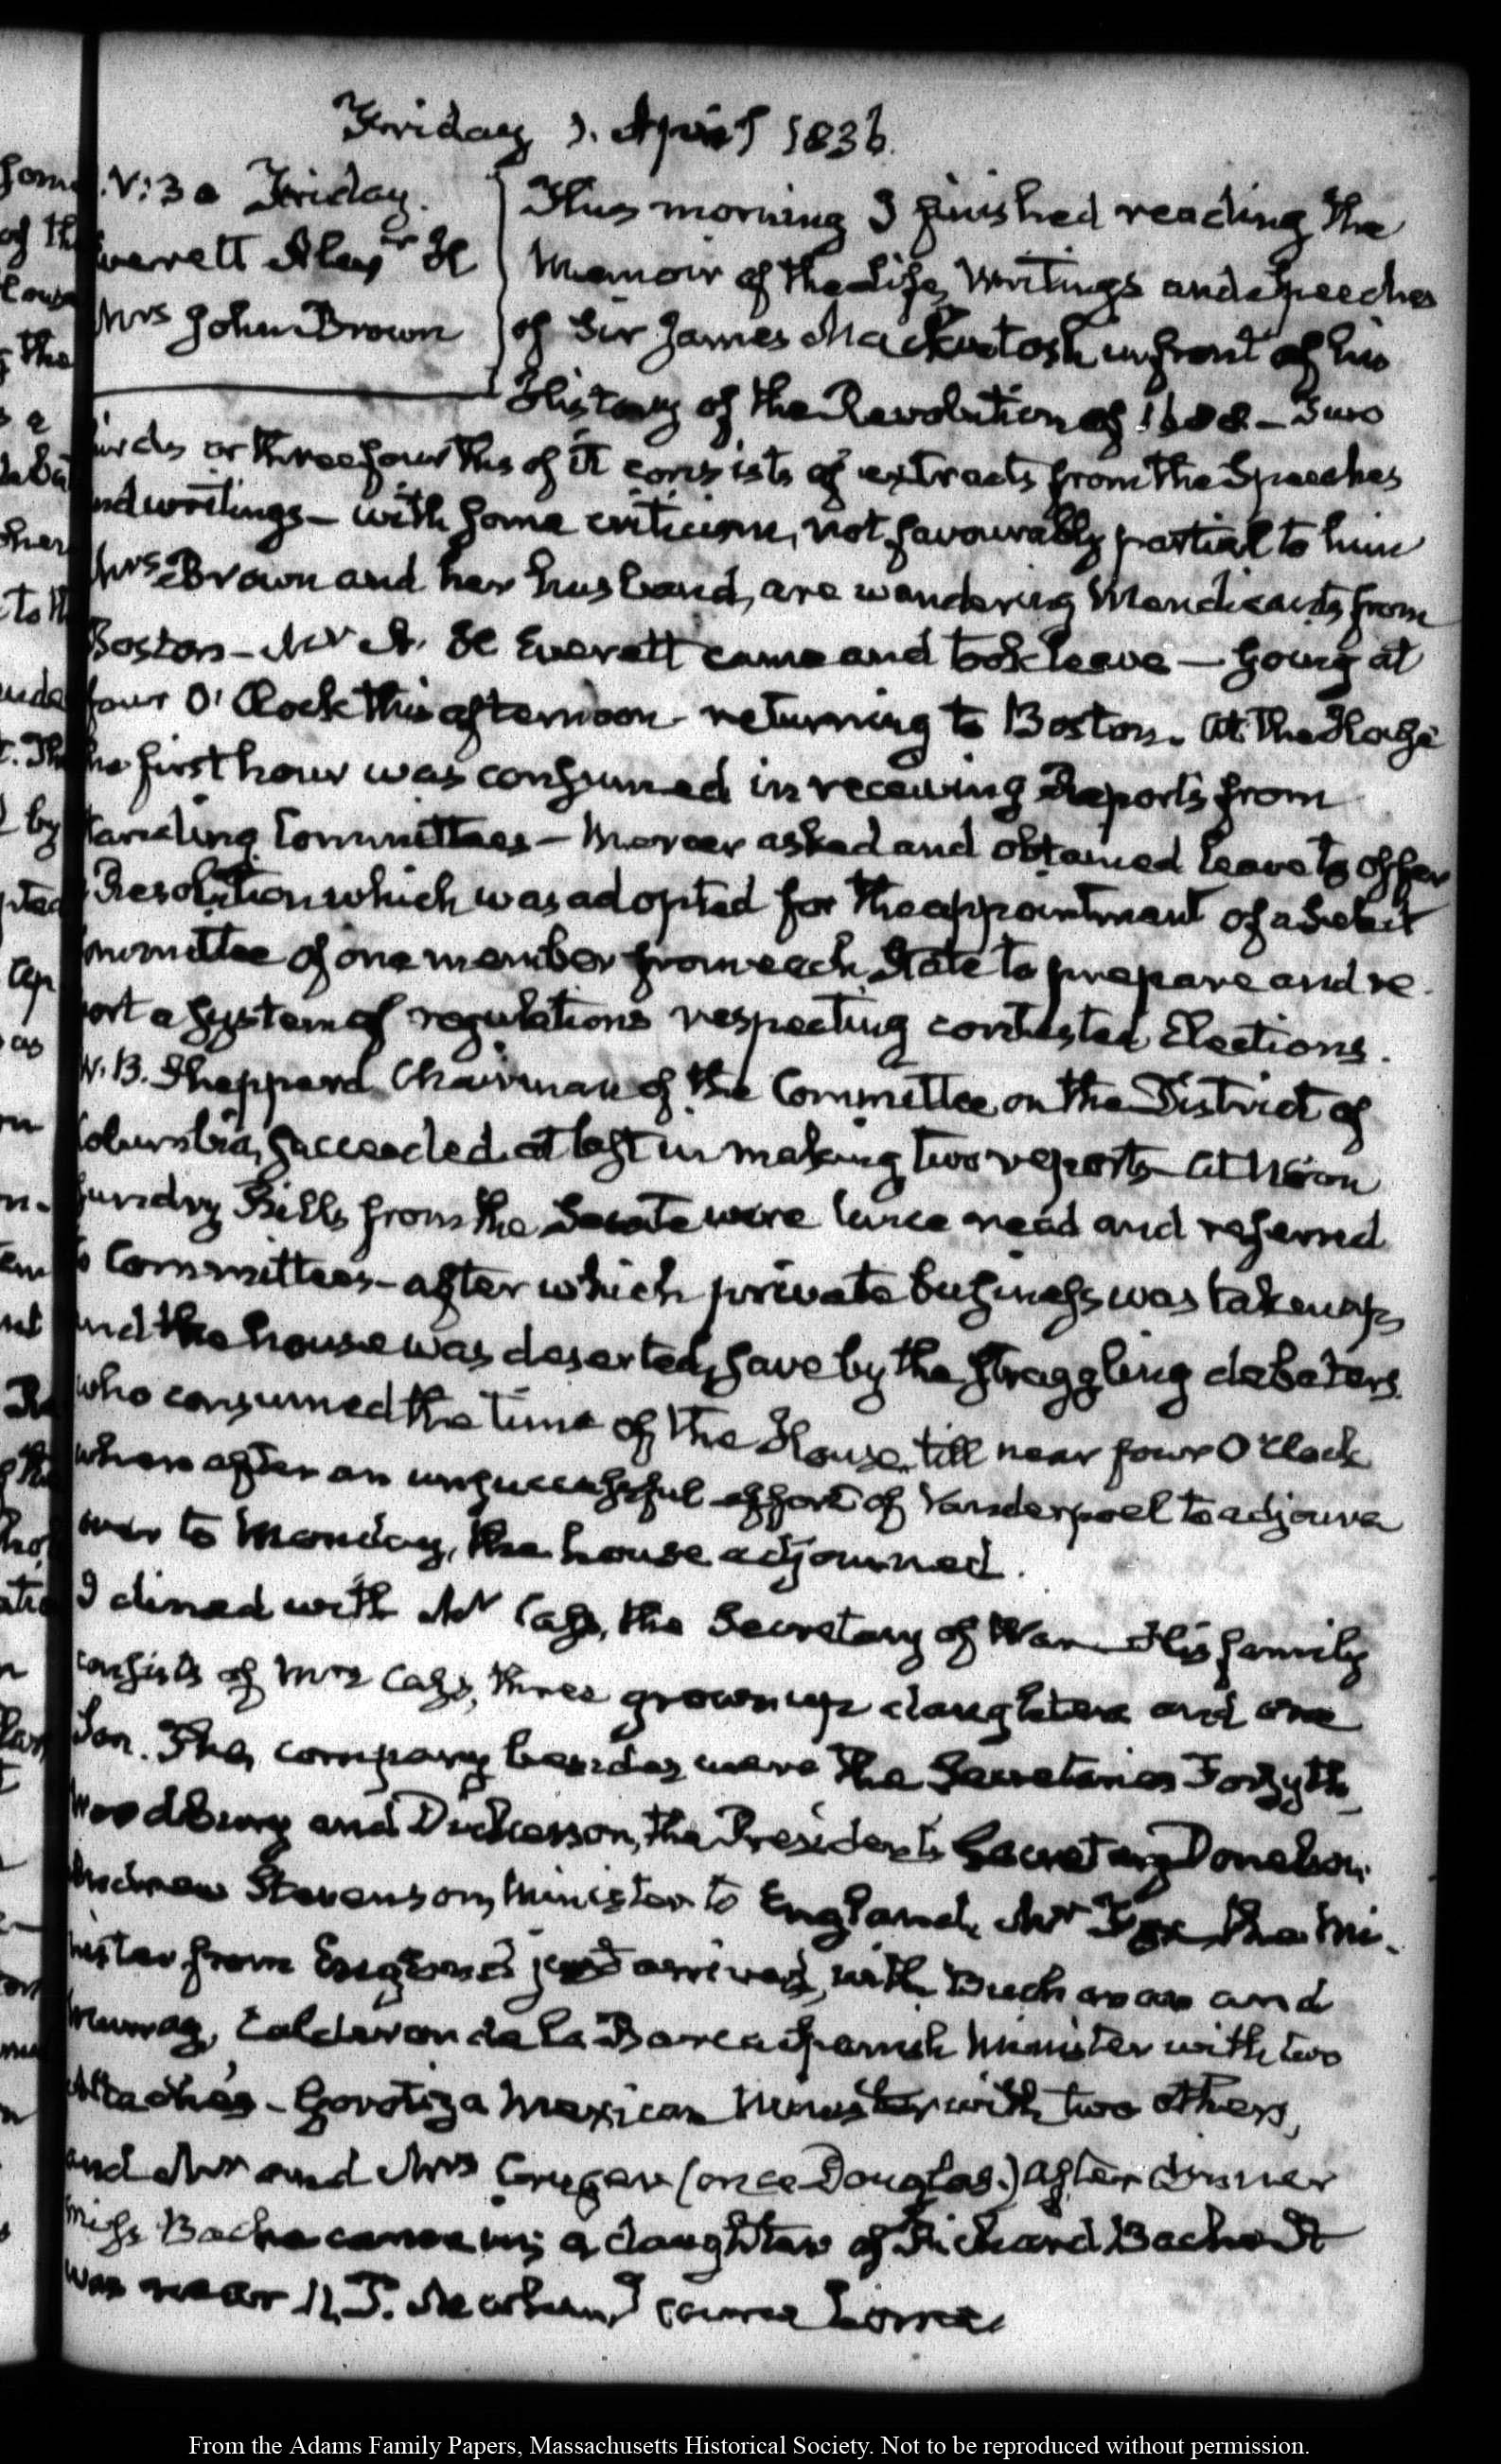 Friday 1. April 1836.
V:30 Friday.
Everett Alexr H
Mrs John Brown
This morning I finished reading the
Memoir of the Life, Writings and Speeches
of Sir James Mackintosh in front of his
History of the Revolution of 1688 – Two
thirds or three fourths of it consists of extracts from the Speeches
and writings – with some criticism, not favourably partial to him
Mrs Brown and her husband, are wandering Mendicants from
Boston – Mr A. H Everett came and took leave – going at
four O'Clock this afternoon returning to Boston. At the House
the first hour was consumed in receiving Reports from
standing Committees – Mercer asked and obtained leave to offer
a Resolution which was adopted for the appointment of a Select
Committee of one member from each State to prepare and re-
port a system of regulations respecting contested Elections.
W. B. Sheppard Chairman of the Committee on the District of
Columbia, succeeded at last in making two reports – At Noon
sundry Bills from the Senate were twice read and referred
to Committees – after which private business was taken up,
and the house was deserted, save by the straggling debaters
who consumed the time of the House till near four O'Clock
when after an unsuccessful effort of Vanderpoel to adjourn
over to Monday, the house adjourned.
I dined with Mr Cass, the Secretary of War – His family
consists of Mrs Cass, three grown up daughters and one
Son. The company besides were the Secretaries Forsyth,
Woodbury and Dickerson, the President's Secretary Donelson,
Andrew Stevenson, Minister to England, Mr Fox, the Mi-
nister from England just arrived, with Buchanan and
Murray, Calderon de la Barca Spanish Minister with two
Attachés – Gorostiza Mexican Minister with two others,
and Mr and Mrs Cruger (once Douglas.) After dinner
Miss Bache came in; a daughter of Richard Bache It
was near 11, when I came home
From the Adams Family Papers, Massachusetts Historical Society. Not to be reproduced without permission.